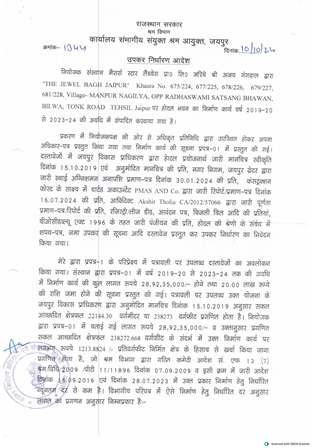 राजस्थान सरकार
श्रम विभाग
कार्यालय संभागीय संयुक्त श्रम आयुक्त, जयपुर
क्रमांक- 1344 दिनांक 10/10/24
उपकर निर्धारण आदेश
नियोजक संस्थान मैसर्स स्टार लैंडक्रेस प्रा० लि० जरिये श्री अजय मंगवाल द्वारा
"THE JEWEL BAGH JAIPUR" Khasra No. 675/224, 677/225, 678/226, 679/227,
681/228, Village- MANPUR NAGILYA, OPP RADHASWAMI SATSANG BHAWAN,
BILWA, TONK ROAD TEHSIL Jaipur पर होटल भवन का निर्माण कार्य वर्ष 2019-20
से 2023-24 की अवधि में संपादित करवाया गया है।
प्रकरण में नियोजक की ओर से अधिकृत प्रतिनिधि द्वारा उपस्थित होकर अपना
अधिकार-पत्र प्रस्तुत किया गया तथा निर्माण कार्य की सूचना प्रपत्र-01 में प्रस्तुत की गई।
दस्तावेजों में जयपुर विकास प्राधिकरण द्वारा होटल प्रयोजनार्थ जारी मानचित्र स्वीकृति
दिनांक 15.10.2019 एवं अनुमोदित मानचित्र की प्रति, नगर निगम, जयपुर ग्रेटर द्वारा
जारी स्थाई अग्निशमन अनापत्ति प्रमाण-पत्र दिनांक 30.01.2024 की प्रति,
कोस्ट के साक्ष्य में चार्टड अकाउन्टेंट PMAS AND Co. द्वारा जारी रिपोर्ट/प्रमाण-पत्र दिनांक
16.07.2024 की प्रति, आर्किटेक्ट Akshit Tholia CA/2012/57066 द्वारा जारी पूर्णता
प्रमाण-पत्र/रिपोर्ट की प्रति, रजिस्ट्री/लीज डीड, आवंटन पत्र, बिजली बिल आदि की प्रतियां,
बीओसीडब्ल्यू एक्ट 1996 के तहत जारी पंजीयन की प्रति, होटल की श्रेणी के संदर्भ में
शपथ-पत्र, जमा उपकर की सूचना आदि दस्तावेज प्रस्तुत कर उपकर निर्धारण का निवेदन
किया गया।
मेरे द्वारा प्रपत्र-1 के परिप्रेक्ष्य में पत्रावली पर उपलब्ध दस्तावेजों का अवलोकन
किया गया। संस्थान द्वारा प्रपत्र-01 में वर्ष 2019-20 से 2023-24 तक की अवधि
में निर्माण कार्य की कुल लागत रूपये 28,92,35,000/- होने तथा 20.00 लाख रूपये
की राशि जमा होने की सूचना प्रस्तुत की गई। पत्रावली पर उपलब्ध उक्त योजना के
जयपुर विकास प्राधिकरण द्वारा अनुमोदित मानचित्र दिनांक 15.10.2019 अनुसार सकल
आच्छादित क्षेत्रफल 22184.30 वर्गमीटर या 238273 वर्गफीट प्रमाणित होता है। नियोजक
द्वारा प्रपत्र-01 में बताई गई लागत रूपये 28,92,35,000/- व उक्तानुसार प्रमाणित
सकल आच्छादित क्षेत्रफल 238272.668 वर्गफीट के संदर्भ में उक्त निर्माण कार्य पर
रूपये 1213.8824 /- प्रतिवर्गफीट निर्मित क्षेत्र के हिसाब से खर्चा किया जाना
प्रमाणित होता है, जो श्रम विभाग द्वारा गठित कमेटी आदेश सं. एफ 13 (7)
श्रम/विधि/2009 /पीपी 11/11896 दिनांक 07.09.2009 व इसी क्रम में जारी आदेश
दिनांक 16.09.2016 एवं दिनांक 28.07.2023 में उक्त प्रकार निर्माण हेतु निर्धारित
न्यूनतम दर से कम है। विभागीय परिपत्र में ऐसे निर्माण हेतु निर्धारित दर अनुसार
लागत का प्रमाणन अनुसार निम्नप्रकार है:-